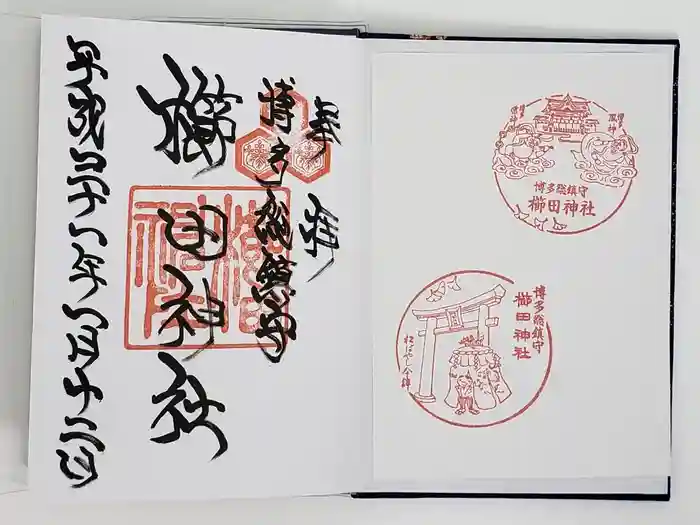 奉拝
博多総鎮守
櫛田神社
平成三十一年一月十二日
櫛田神社
博多総鎮守
櫛田神社
博多総鎮守
櫛田神社